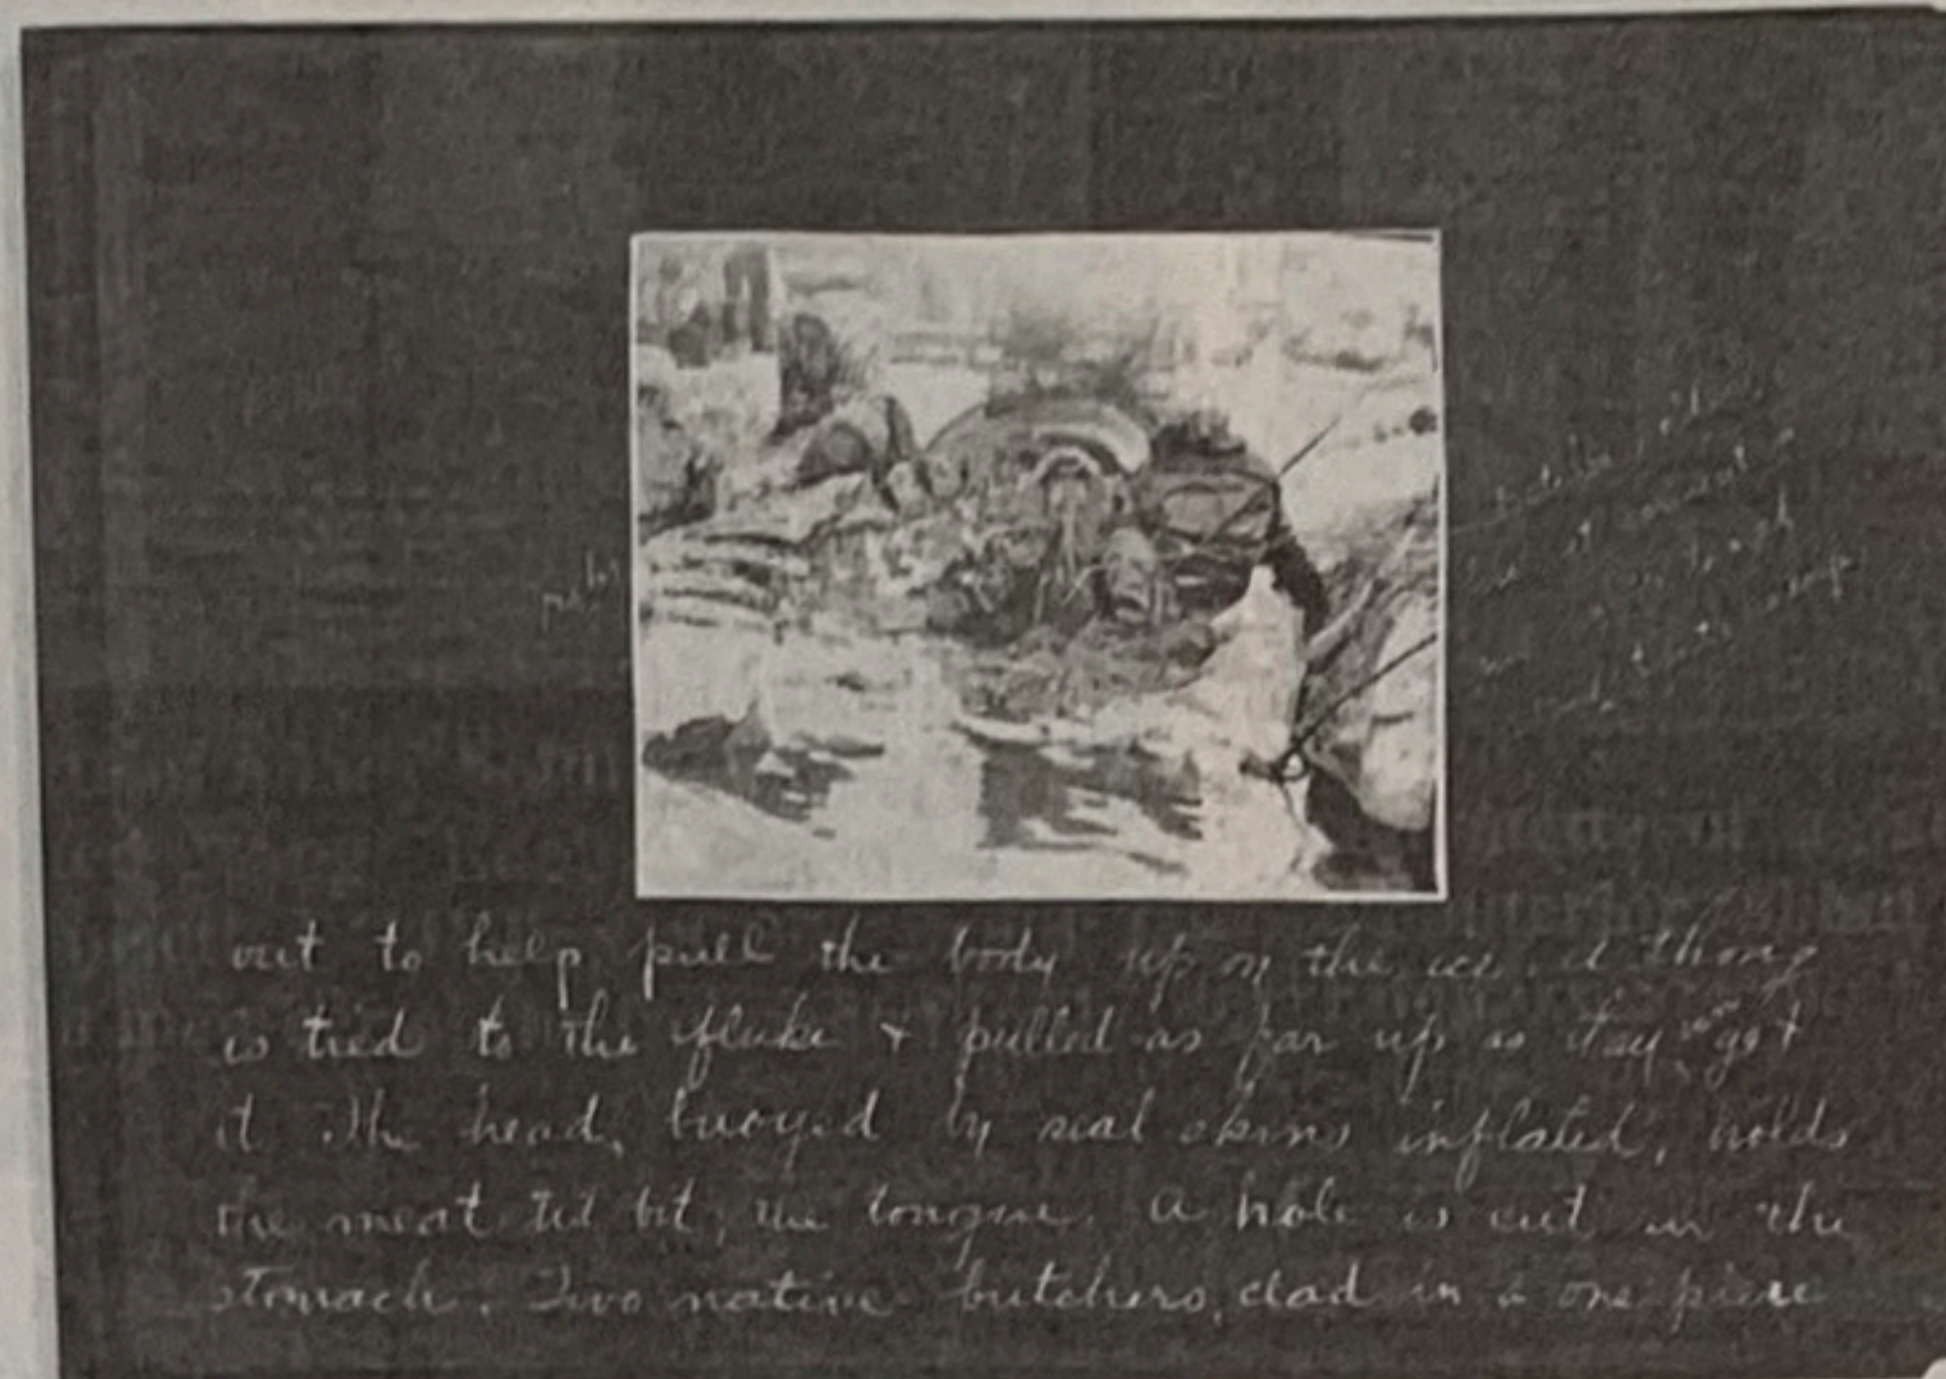 out to help pull the body up on the ice. A thong
is tied to the fluke & pulled as far up as they can get
it. The head, buoyed by seal skins inflated, holds
the meat tid bit, the tongue. A hole is cut in the
stomach. Two native butchers, clad in a one piece